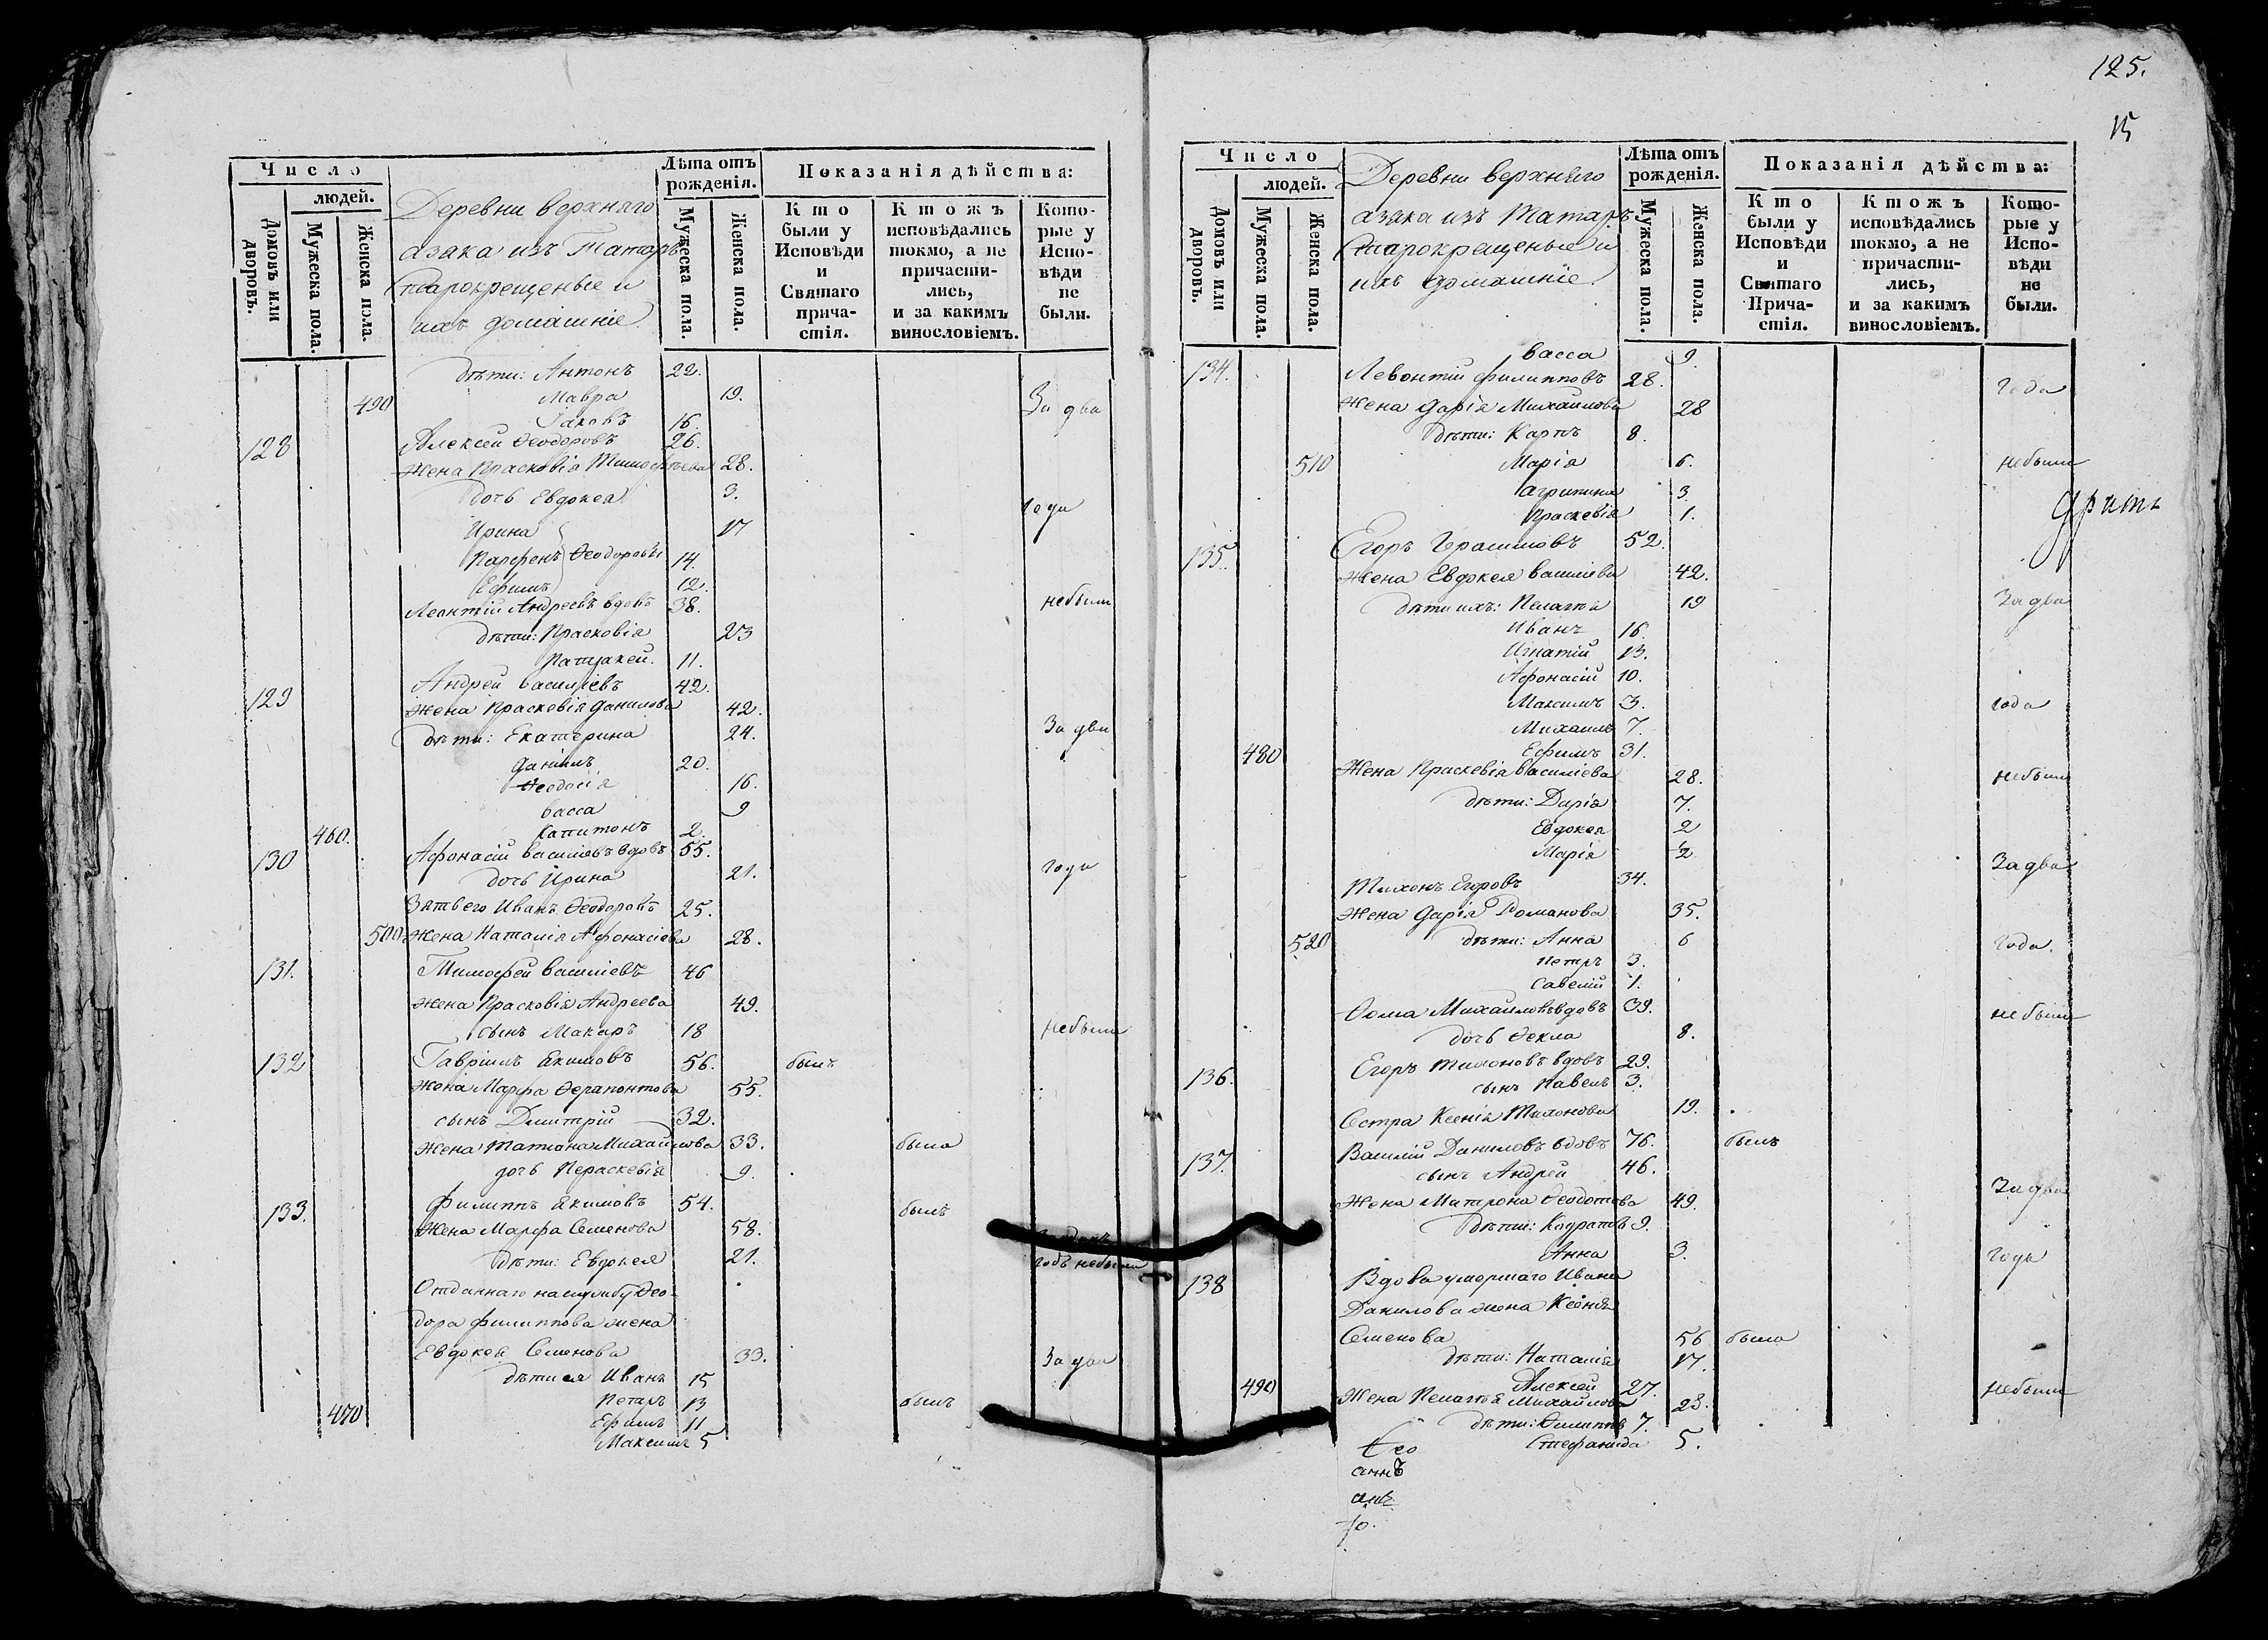 Число
людей.
Домовъ или дворовъ.
Мужеска пола.
Женска пола.
Деревни верхняго
азяка изъ Татаръ
старокрещеные и
ихъ домашніе
Лѣта отъ рожденія.
Мужеска пола.
Женска пола.
Показанія дѣйства:
Кто были у Исповѣди и Святаго причастія.
Кто жъ исповѣдались токмо, а не причастились, и за какимъ винословіемъ.
Которые у Исповѣди не были.
дѣти: Антонъ 22.
490 Мавра 19. За два
Іаковъ 16.
128 Алексей Ѳеодоровъ 26.
жена Прасковія Тимофѣева 28.
дочь Евдокея 3. года
Ирина 17
Парфенъ Ѳеодоровы 14.
Ефимъ 12.
Леонтій Андреевъ вдовъ 38. небыли
дѣти: Прасковія 23
Патракей. 11.
129 Андрей Василіевъ 42.
жена Праскевія Данилова 42.
дѣти: Екатерина 24. За два
Даніилъ 20.
Ѳеодосія 16.
Васса 9
460. Капитонъ 2.
130 Афонасій Василіевъ вдовъ 55.
дочь Ирина 21. года
Зять его Иванъ Ѳеодоровъ 25.
500 жена Наталія Афонасіева 28.
131. Тимофей Василіевъ 46
жена Прасковія Андреева 49.
сынъ Макаръ 18 небыли
132 Гавріилъ Екимовъ 56. былъ
жена Марфа Ѳерапонтова 55.
сынъ Димитрій 32.
жена Татіана Михайлова 33. была
дочь Пераскевія 9.
133. Филиппъ Екимовъ 54. былъ
жена Марфа Семенова 58.
дѣти: Евдокея 21. годъ небыли
Отданнаго наслужбу Ѳео-
дора Филиппова жена
Евдокея Семенова 33. За два
дѣти ея Иванъ 15
Петръ 13 былъ
470 Ефимъ 11
Максимъ 5
125.
15
Число
людей.
Домовъ или дворовъ.
Мужеска пола.
Женска пола.
Деревни верхняго
азяка изъ Татаръ
старокрещеные и
ихъ домашніе
Лѣта отъ рожденія.
Мужеска пола.
Женска пола.
Показанія дѣйства:
Кто были у Исповѣди и Святаго Причастія.
Кто жъ исповѣдались токмо, а не причастились, и за какимъ винословіемъ.
Которые у Исповѣди не были.
Васса 9.
134. Левонтій Филипповъ 28. года
жена Дарія Михайлова 28
дѣти: Карпъ 8.
510 Марія 6. небыли
Агрипина 3.
Праскевія 1.
135. Егоръ Герасимовъ 52.
жена Евдокея Василіева 42.
дѣти ихъ: Пелагѣя 19 За два
Иванъ 16.
Игнатій 13.
Афонасій 10.
Максимъ 3. года
Михаилъ 7.
480 Ефимъ 31.
Жена Праскевія Василіева 28. небыли
дѣти: Дарія 7.
Евдокея 2
Марія 1/2
За два
Тихонъ Егоровъ 34.
жена Дарія Романова 35.
520 дѣти: Анна 6 года.
Петръ 3.
Савелій 1.
Ѳома Михайловъ вдовъ 39. небыли
дочь Ѳекла 8.
136. Егоръ Тихоновъ вдовъ 29.
сынъ Павелъ 3.
Сестра Ксенія Тихонова 19.
137. Василій Даниловъ вдовъ 76. былъ
сынъ Андрей 46.
За два
Жена Матрона Ѳеодотова 49.
дѣти: Кодратъ 9.
Анна 3. года
138 Вдова умершаго Ивана
Данилова жена Ксенія
Семенова 56 была
дѣти: Наталія 17.
490 Алексей 27. небыли
Жена Пелагѣя Михайлова 23.
дѣти: Филиппъ 7.
Стефанида 5.